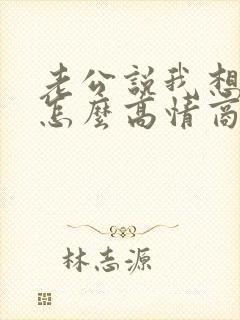 老公說我想
怎麼高情商
林志源